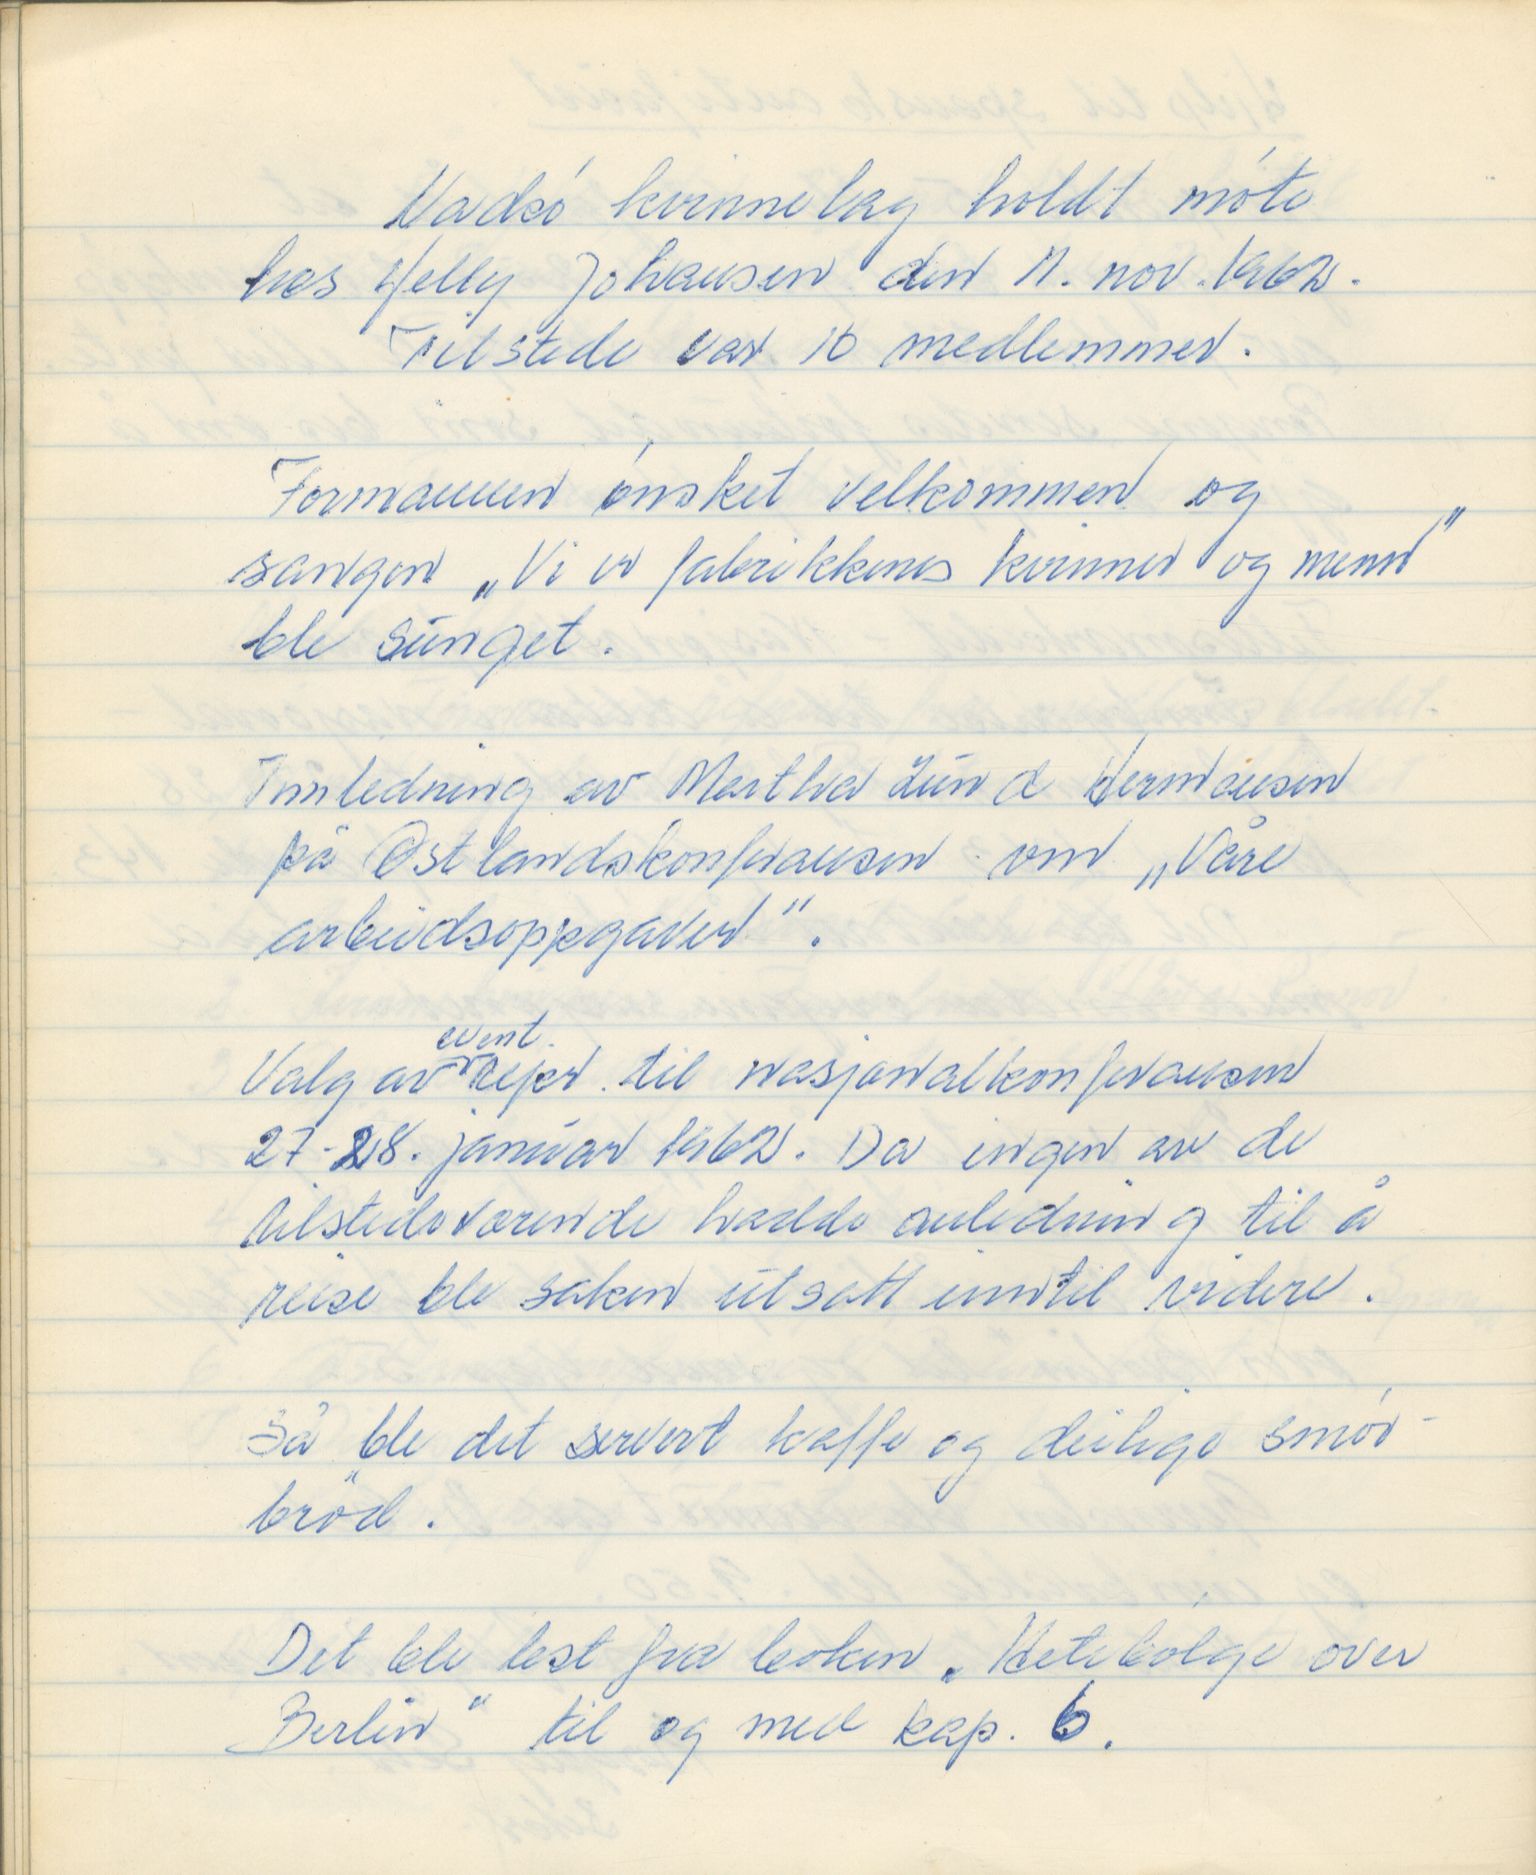 Vadsö kvinnelag holdt möte
hos Helly Johansen den 11. nov. 1962.
Tilstede var 10 medlemmer.
Formannen önsket velkommen og
sangen „Vi er fabrikkenes kvinner og menn"
ble sunget.
Innledning av Martha Lund Hermansen
på Östlandskonferansen om „Våre
arbeidsoppgaver".
event.
Valg av repr. til nasjonalkonferansen
27-28. januar 1962. Da ingen av de
tilstedeværende hadde anledning til å
reise ble saken utsatt inntil videre.
Så ble det servert kaffe og deilige smör-
bröd.
Det ble lest fra boken „Hetebölge over
Berlin" til og med kap. 6.